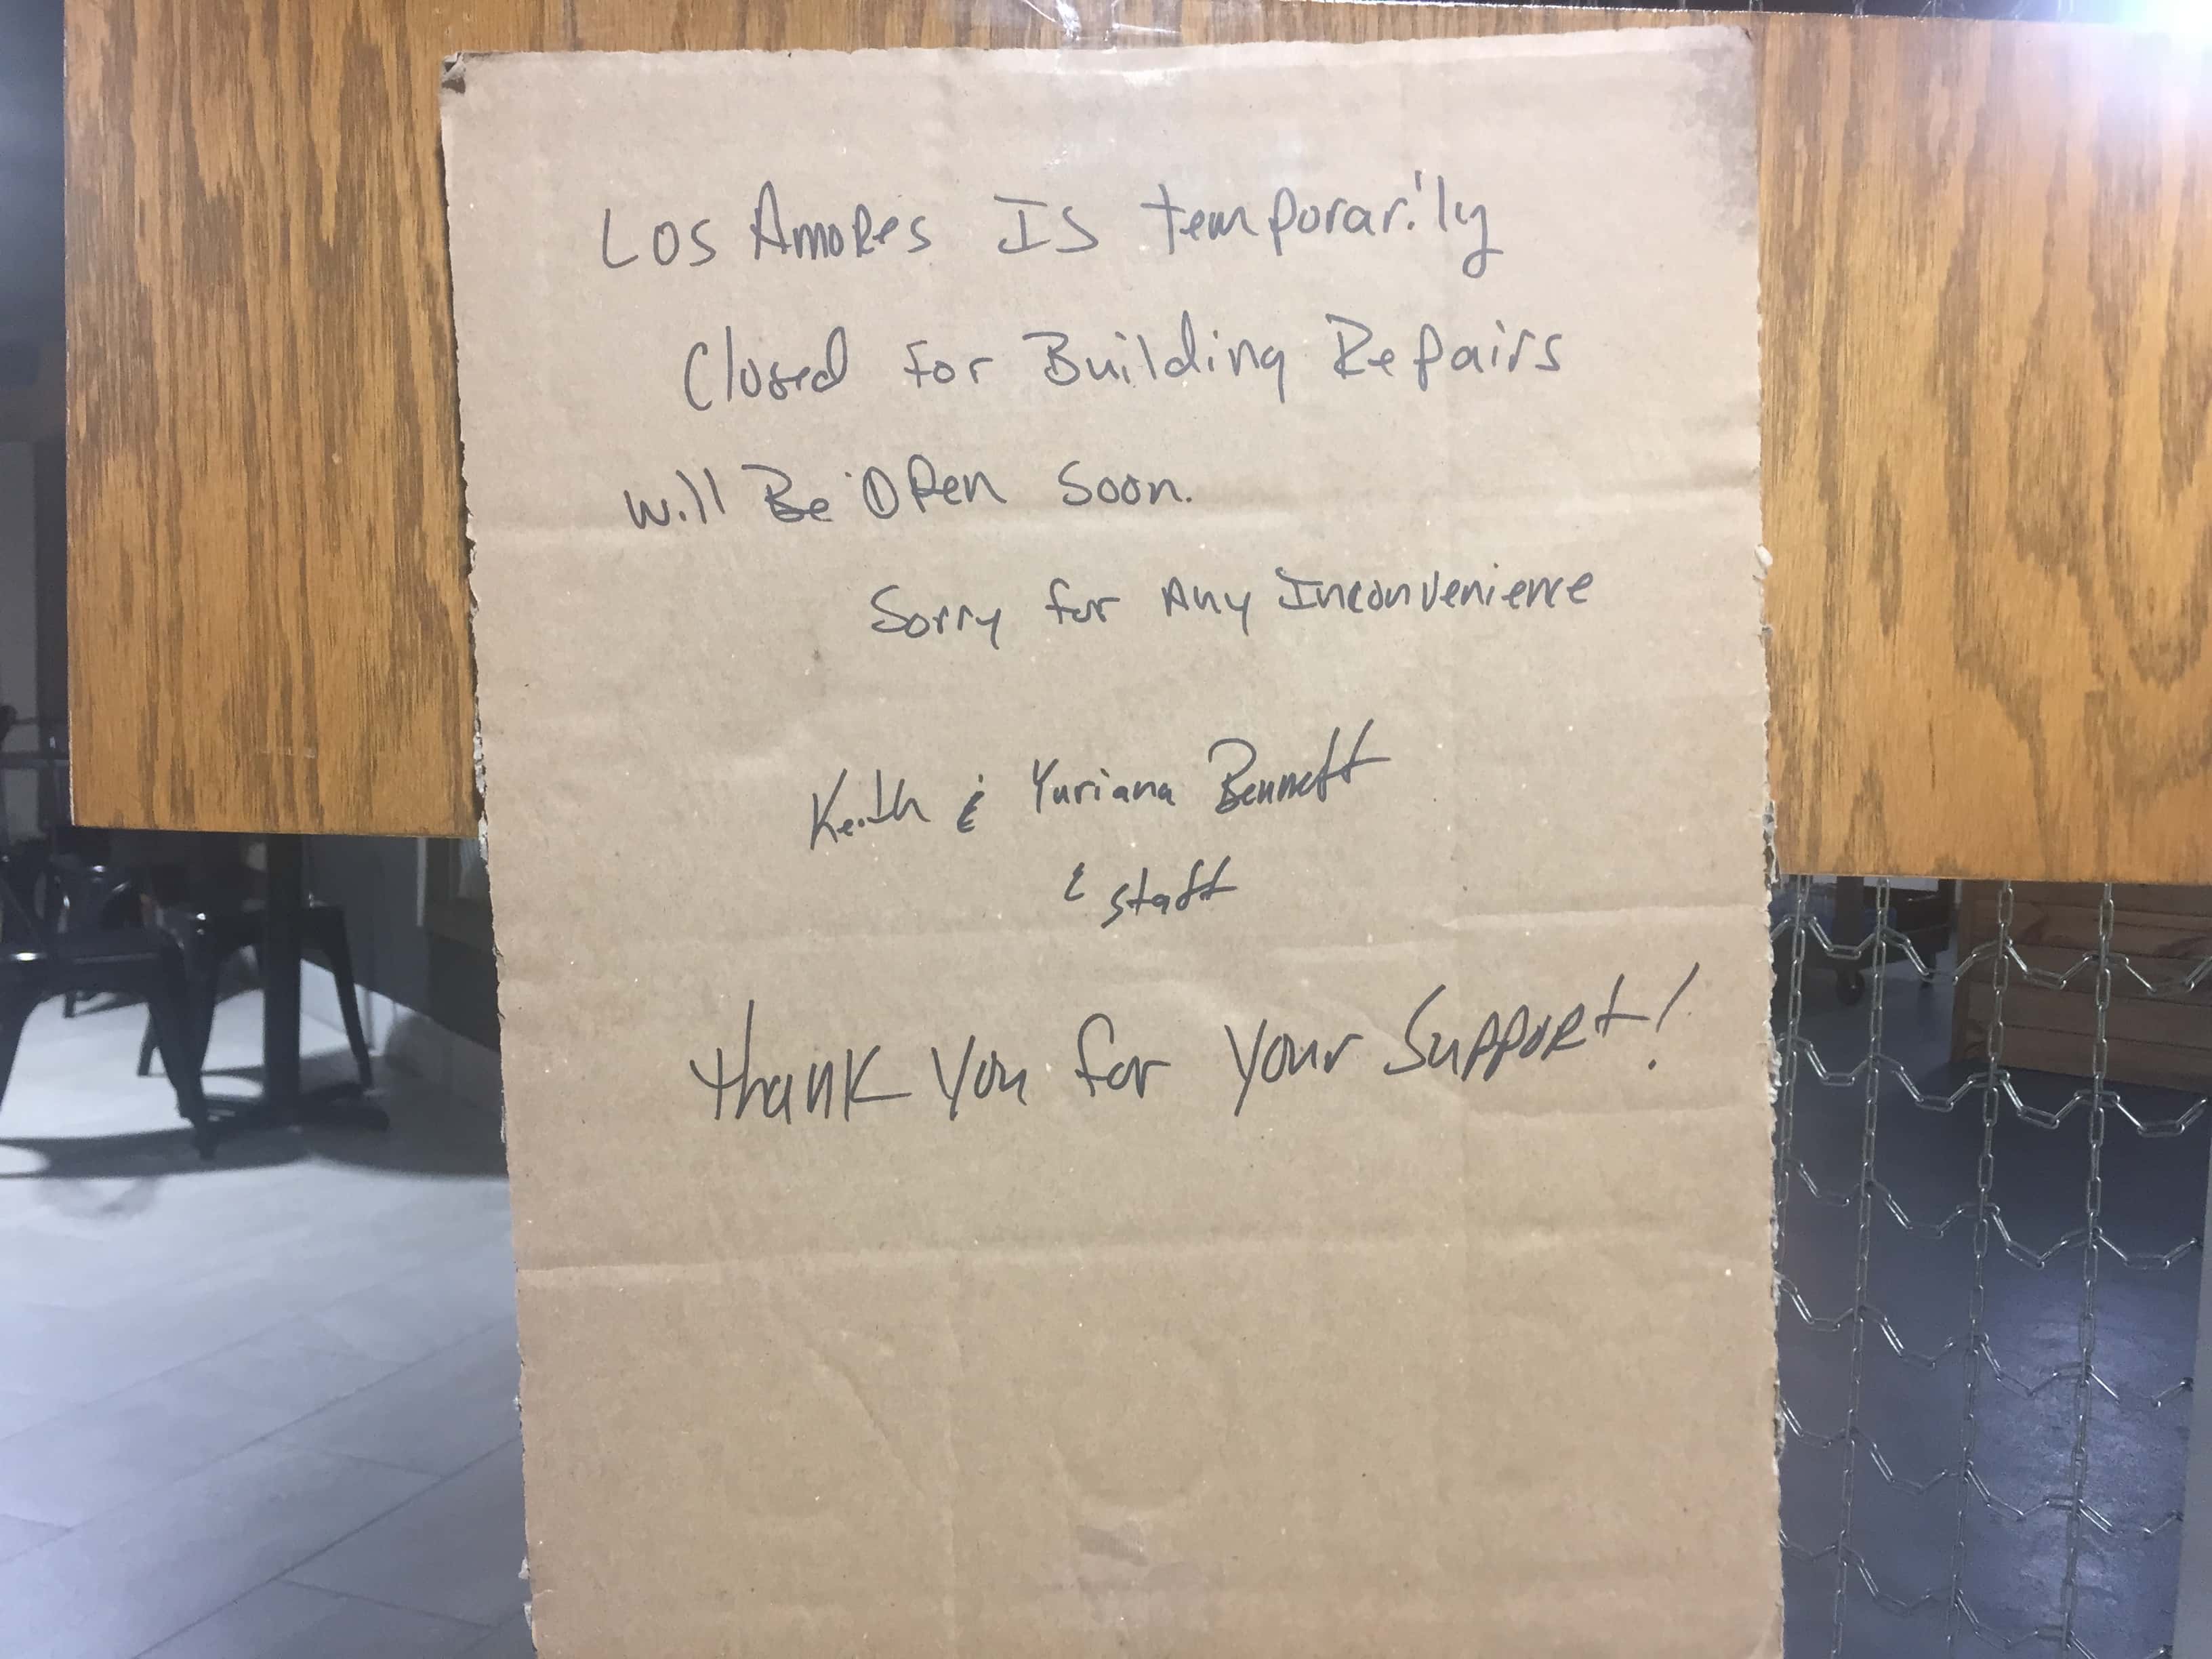 Los Amores Is temporarily
Closed for Building Repairs
Will Be Open Soon.
Sorry for Any Inconvenience
Keith & Yuriana Bennett
& staff
thank you for your Support!